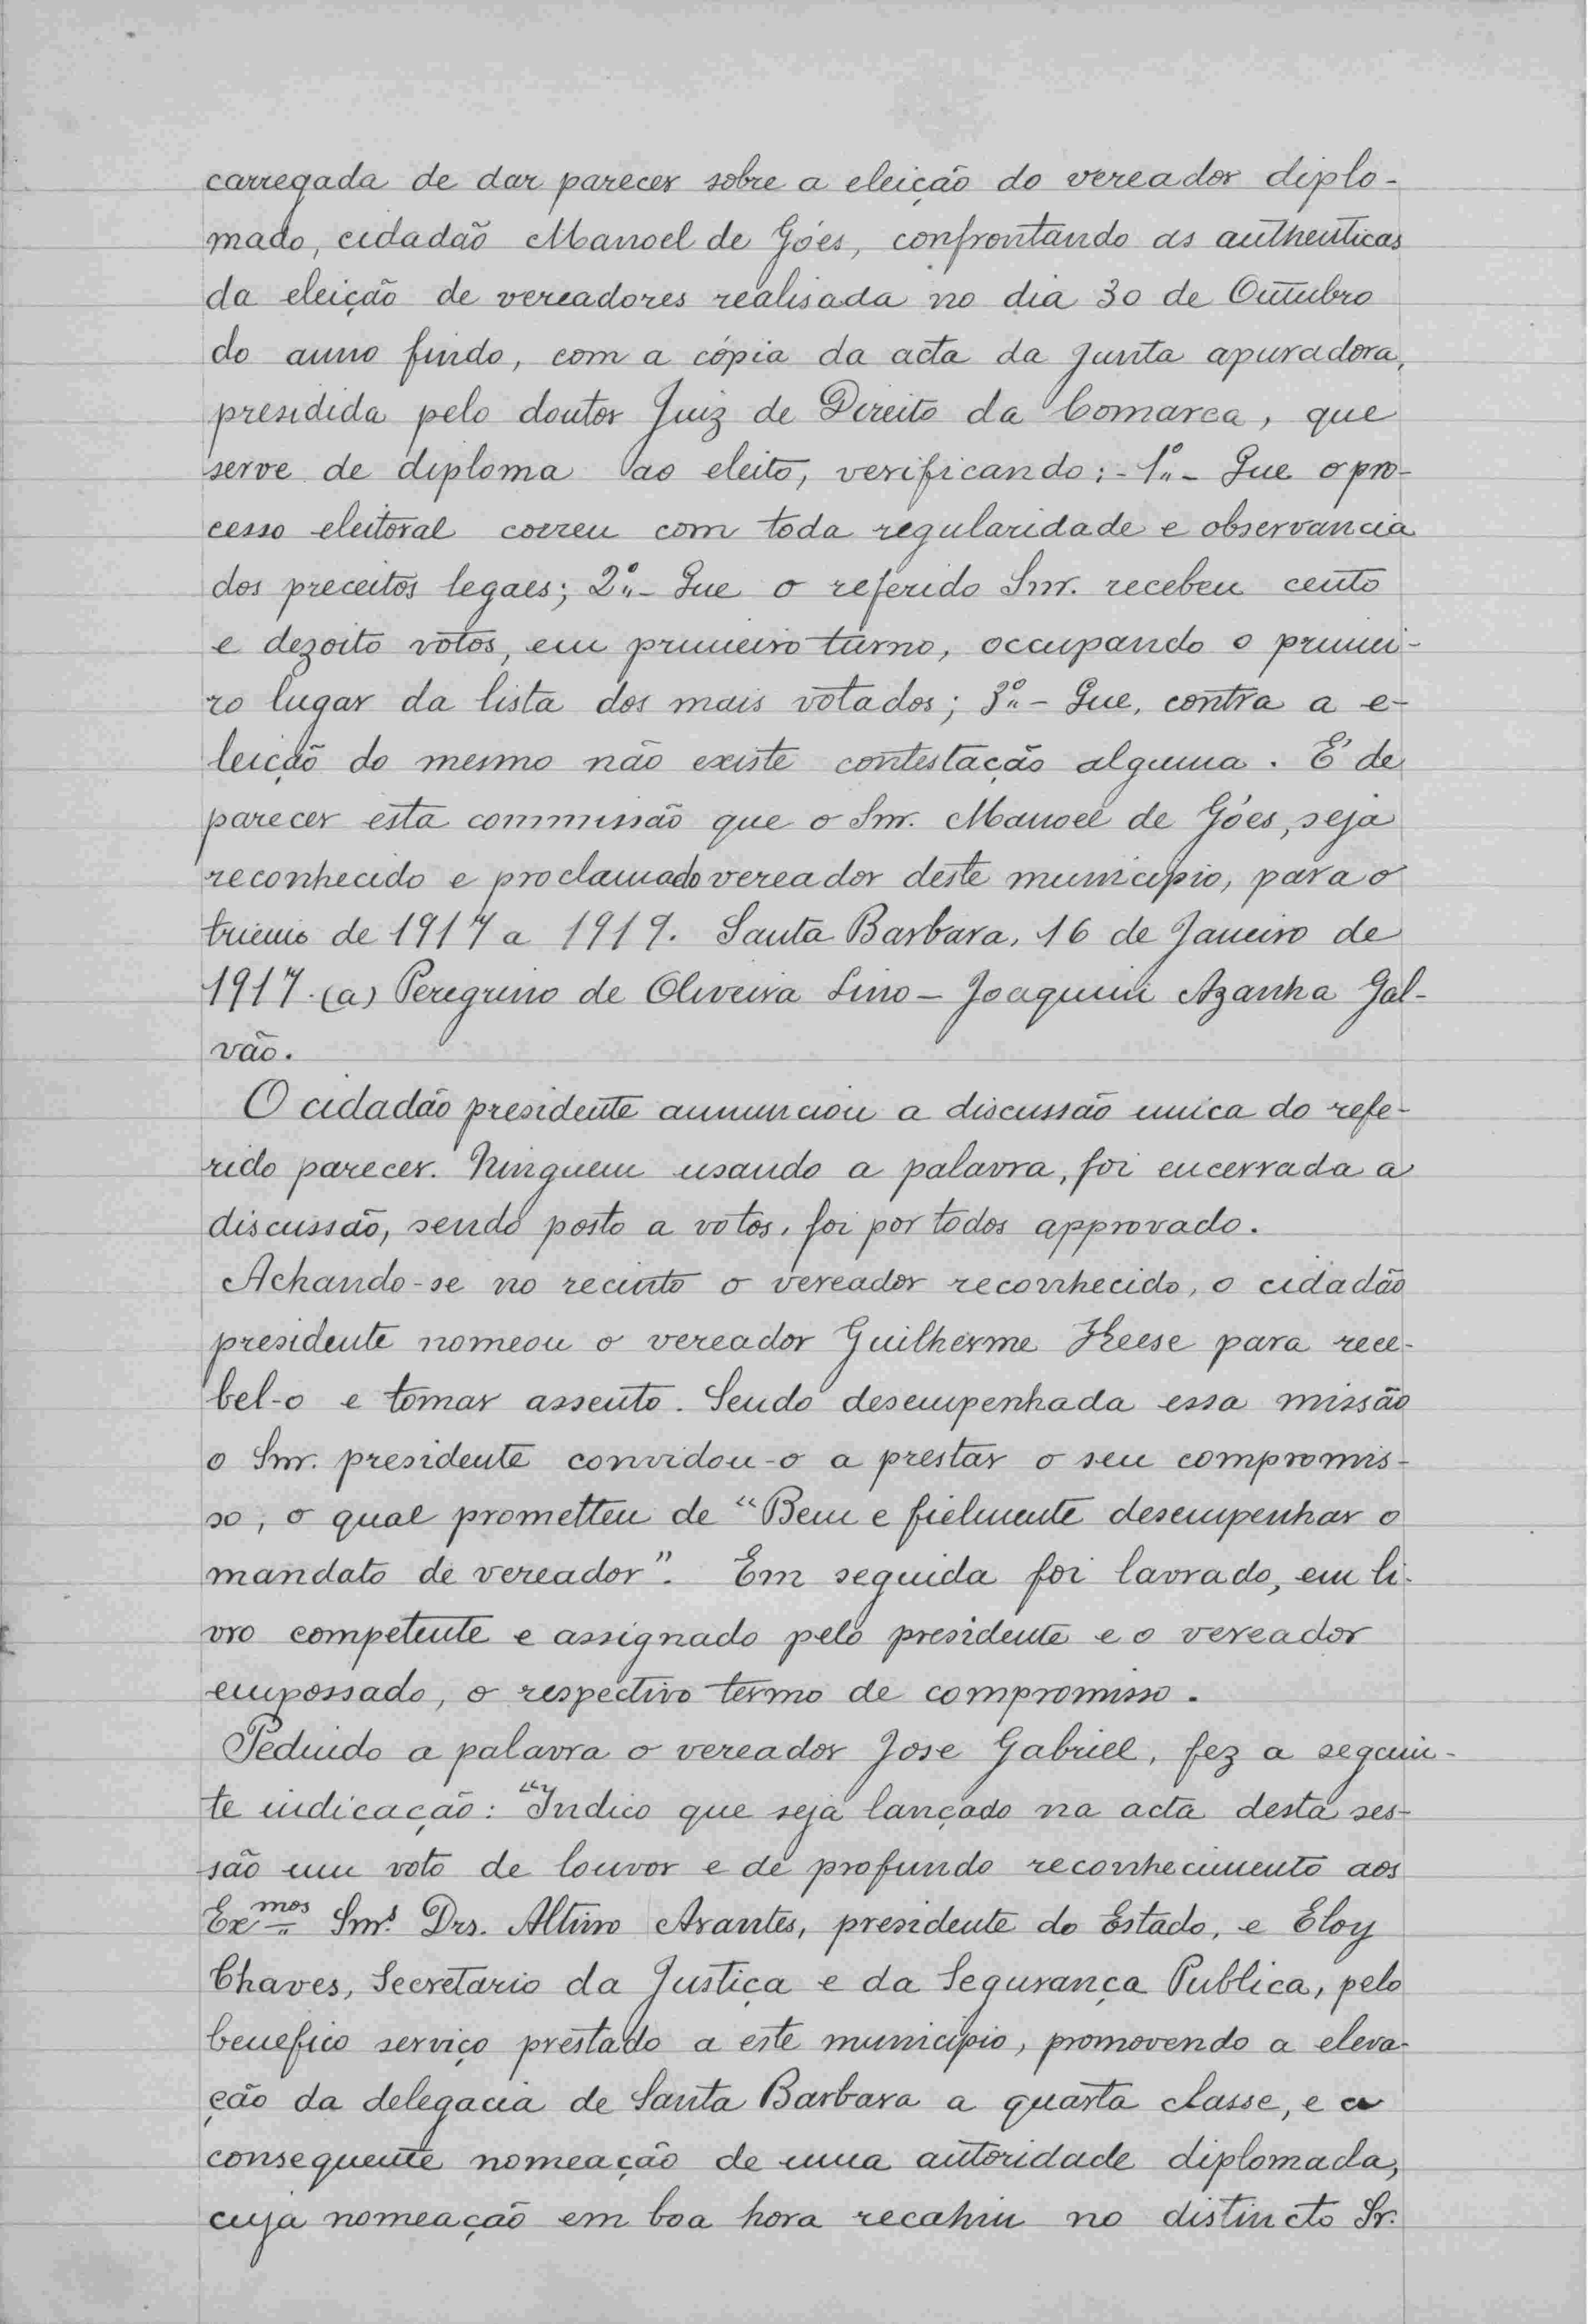 carregada de dar parecer sobre a eleição do vereador diplo-
mado, cidadão Manoel de Góes, confrontando as authenticas
da eleição de vereadores realisada no dia 30 de Outubro
do anno findo, com a cópia da acta da Junta apuradora,
presidida pelo doutor Juiz de Direito da Comarca, que
serve de diploma ao eleito, verificando: - 1º - Que o pro-
cesso eleitoral correu com toda regularidade e observancia
dos preceitos legaes; 2º - Que o referido Snr. recebeu cento
e dezoito votos, em primeiro turno, occupando o primei-
ro lugar da lista dos mais votados; 3º - Que, contra a e-
leição do mesmo não existe contestação alguma. É de
parecer esta commissão que o Snr. Manoel de Góes, seja
reconhecido e proclamado vereador deste municipio, para o
trienio de 1917 a 1919. Santa Barbara, 16 de Janeiro de
1917. (a) Peregrino de Oliveira Lino - Joaquim Azanha Gal-
vão.
O cidadão presidente annunciou a discussão unica do refe-
rido parecer. Ninguem usando a palavra, foi encerrada a
discussão, sendo posto a votos, foi por todos approvado.
Achando-se no recinto o vereador reconhecido, o cidadão
presidente nomeou o vereador Guilherme Keese para rece-
bel-o e tomar assento. Sendo desempenhada essa missão
o Snr. presidente convidou-o a prestar o seu compromis-
so, o qual prometteu de "Bem e fielmente desempenhar o
mandato de vereador". Em seguida foi lavrado, em li-
vro competente e assignado pelo presidente e o vereador
empossado, o respectivo termo de compromisso.
Pedindo a palavra o vereador Jose Gabriel, fez a seguin-
te indicação: "Indico que seja lançado na acta desta ses-
são um voto de louvor e de profundo reconhecimento aos
Exmos Snrs Drs. Altino Arantes, presidente do Estado, e Eloy
Chaves, Secretario da Justiça e da Segurança Publica, pelo
benefico serviço prestado a este municipio, promovendo a eleva-
ção da delegacia de Santa Barbara a quarta classe, e a
consequente nomeação de uma autoridade diplomada,
cuja nomeação em boa hora recahiu no distincto Sr.